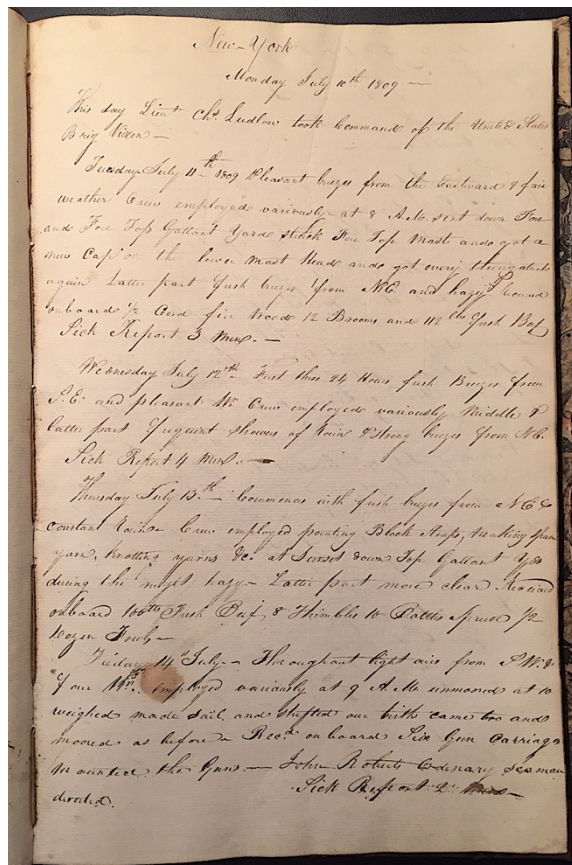 New-York
Monday July 10th 1809 —
This day Lieut Chs. Ludlow took Command of the United States
Brig Vixen —
Tuesday July 11th 1809 Pleasant breezes from the Eastward & fair
weather Crew employed variously at 8 A.M. sent down Fore
and Fore Top Gallant Yards struck Fore Top Mast and got a
new Cap on the lower mast Head and got every thing
again Latter part fresh breezes from N.E. and hazy
onboard 1/2 Cord fire Wood 12 Brooms and 112 lbs fresh Beef
Sick Report 3 Men. —
Wednesday July 12th First these 24 Hours fresh Breezes from
S.E. and pleasant Wr. Crew employed variously Middle &
latter part frequent showers of Rain & strong breezes from N.E.
Sick Report 4 Men. —
Thursday July 13th Commences with fresh breezes from N.E. &
constant Rain — Crew employed pointing Black Straps, making spun
yarn, Knotting yarns &c. at Sunset down Top Gallant Yds
during the night hazy — Latter part more clear Received
onboard 106 lbs Fresh Beef, 8 Thimbles 10 Bottles Spruce 1/2
Dozen Fowls —
Friday 14th July — Throughout light airs from S.W. &
fair Wr. employed variously at 9 A.M. unmoored at 10
weighed made sail, and shifted our birth came too and
moored as before — Recd. onboard Six Gun Carriages
mounted the Guns — John Roberts Ordinary Seaman
Sick Report 2 Men —